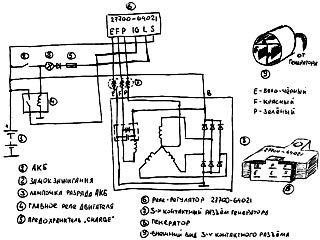 27700-64021
E F P IG L S
ОТ
ГЕНЕРАТОРА
E - БЕЛО-ЧЁРНЫЙ
F - КРАСНЫЙ
P - ЗЕЛЁНЫЙ
E F P
B
27700-64021
① АКБ
② ЗАМОК ЗАЖИГАНИЯ
③ ЛАМПОЧКА РАЗРЯДА АКБ
④ ГЛАВНОЕ РЕЛЕ ДВИГАТЕЛЯ
⑤ ПРЕДОХРАНИТЕЛЬ "CHARGE"
⑥ РЕЛЕ-РЕГУЛЯТОР 27700-64021
⑦ 3-х КОНТАКТНЫЙ РАЗЪЁМ ГЕНЕРАТОРА
⑧ ГЕНЕРАТОР
⑨ ВНЕШНИЙ ВИД 3-х КОНТАКТНОГО РАЗЪЁМА